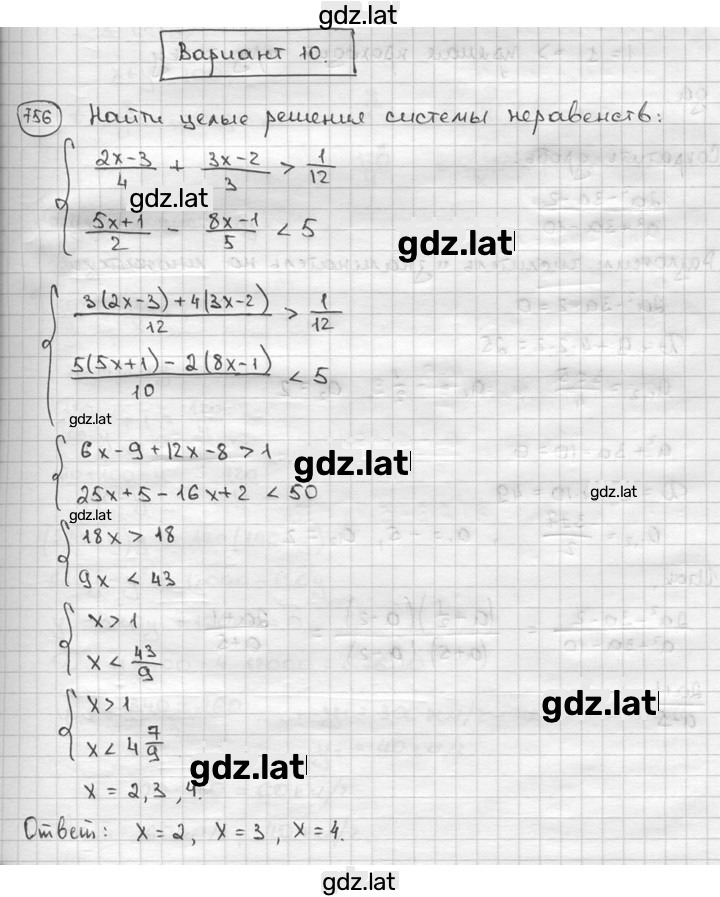 gdz.lat
Вариант 10.
756 Найти целые решения системы неравенств:
(2x-3)/4 + (3x-2)/3 > 1/12
gdz.lat
(5x+1)/2 - (8x-1)/5 < 5
gdz.lat
(3(2x-3)+4(3x-2))/12 > 1/12
(5(5x+1)-2(8x-1))/10 < 5
gdz.lat
6x-9+12x-8>1
gdz.lat
25x+5-16x+2 < 50
gdz.lat
gdz.lat
18x > 18
9x < 43
x>1
x< 43/9
x>1
gdz.lat
x< 4 7/9
gdz.lat
x = 2,3,4.
Ответ: x=2, x=3, x=4.
gdz.lat